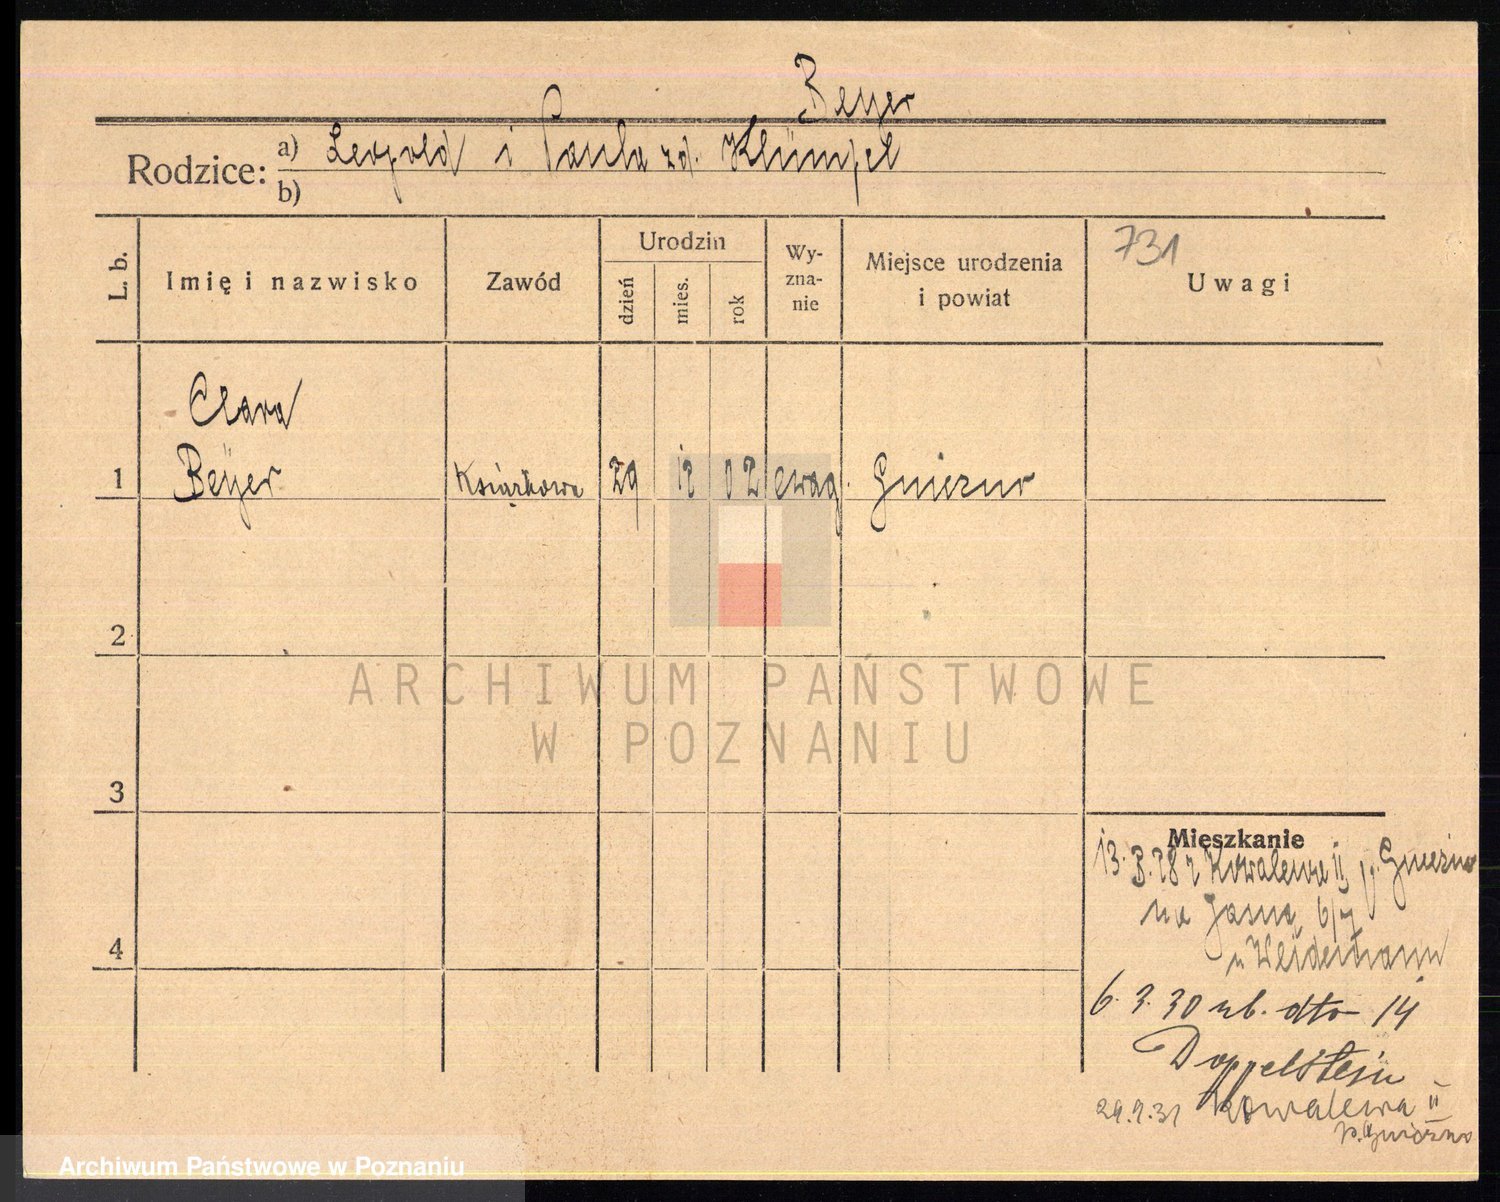 Beyer
Rodzice: a) Leopold i Paula zd. Klümpel
b)
L. b.
Imię i nazwisko
Zawód
Urodzin
dzień
mies.
rok
Wy-
zna-
nie
Miejsce urodzenia
i powiat
731
Uwagi
Clara
1 Beÿer Książkowa 29 12 02 ewag. Gniezno
2
ARCHIWUM PAŃSTWOWE
W POZNANIU
3
Mieszkanie
13. 3. 28 z Kowalewa II p. Gniezno
na Jasną 6/7
u Weidemann
4
6. 3. 30 ub. dto 14
Doppelstein
29.9.31 Kowalewa II
p. Gniezno
Archiwum Państwowe w Poznaniu